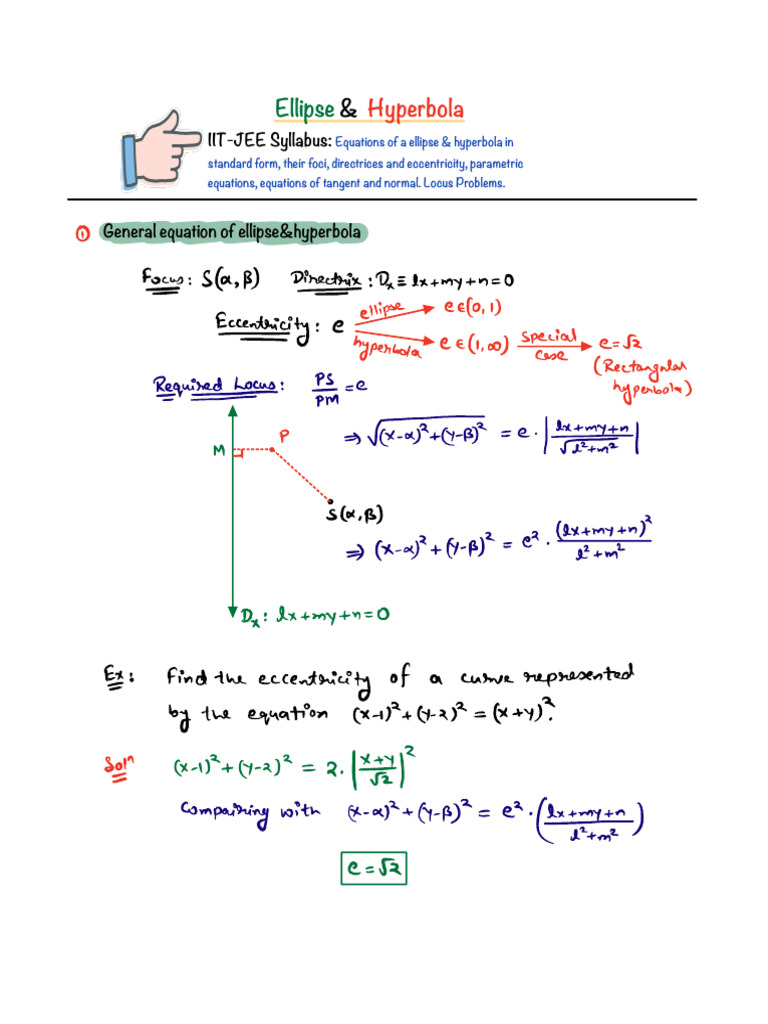 Ellipse & Hyperbola
IIT-JEE Syllabus: Equations of a ellipse & hyperbola in
standard form, their foci, directrices and eccentricity, parametric
equations, equations of tangent and normal. Locus Problems.
① General equation of ellipse&hyperbola
Focus: S(α, β) Directrix: Dₓ ≡ lx+my+n=0
Eccentricity: e
ellipse e∈(0,1)
hyperbola e∈(1,∞) special case e=√2
(Rectangular
hyperbola)
Required Locus: PS/PM = e
⇒ √((x-α)²+(y-β)²) = e · |(lx+my+n)/√(l²+m²)|
M P
S(α, β)
⇒ (x-α)²+(y-β)² = e² · (lx+my+n)²/(l²+m²)
Dₓ: lx+my+n=0
Ex: Find the eccentricity of a curve represented
by the equation (x-1)²+(y-2)² = (x+y)².
Solⁿ (x-1)²+(y-2)² = 2·|(x+y)/√2|²
Compairing with (x-α)²+(y-β)² = e²·((lx+my+n)/(l²+m²))
e=√2